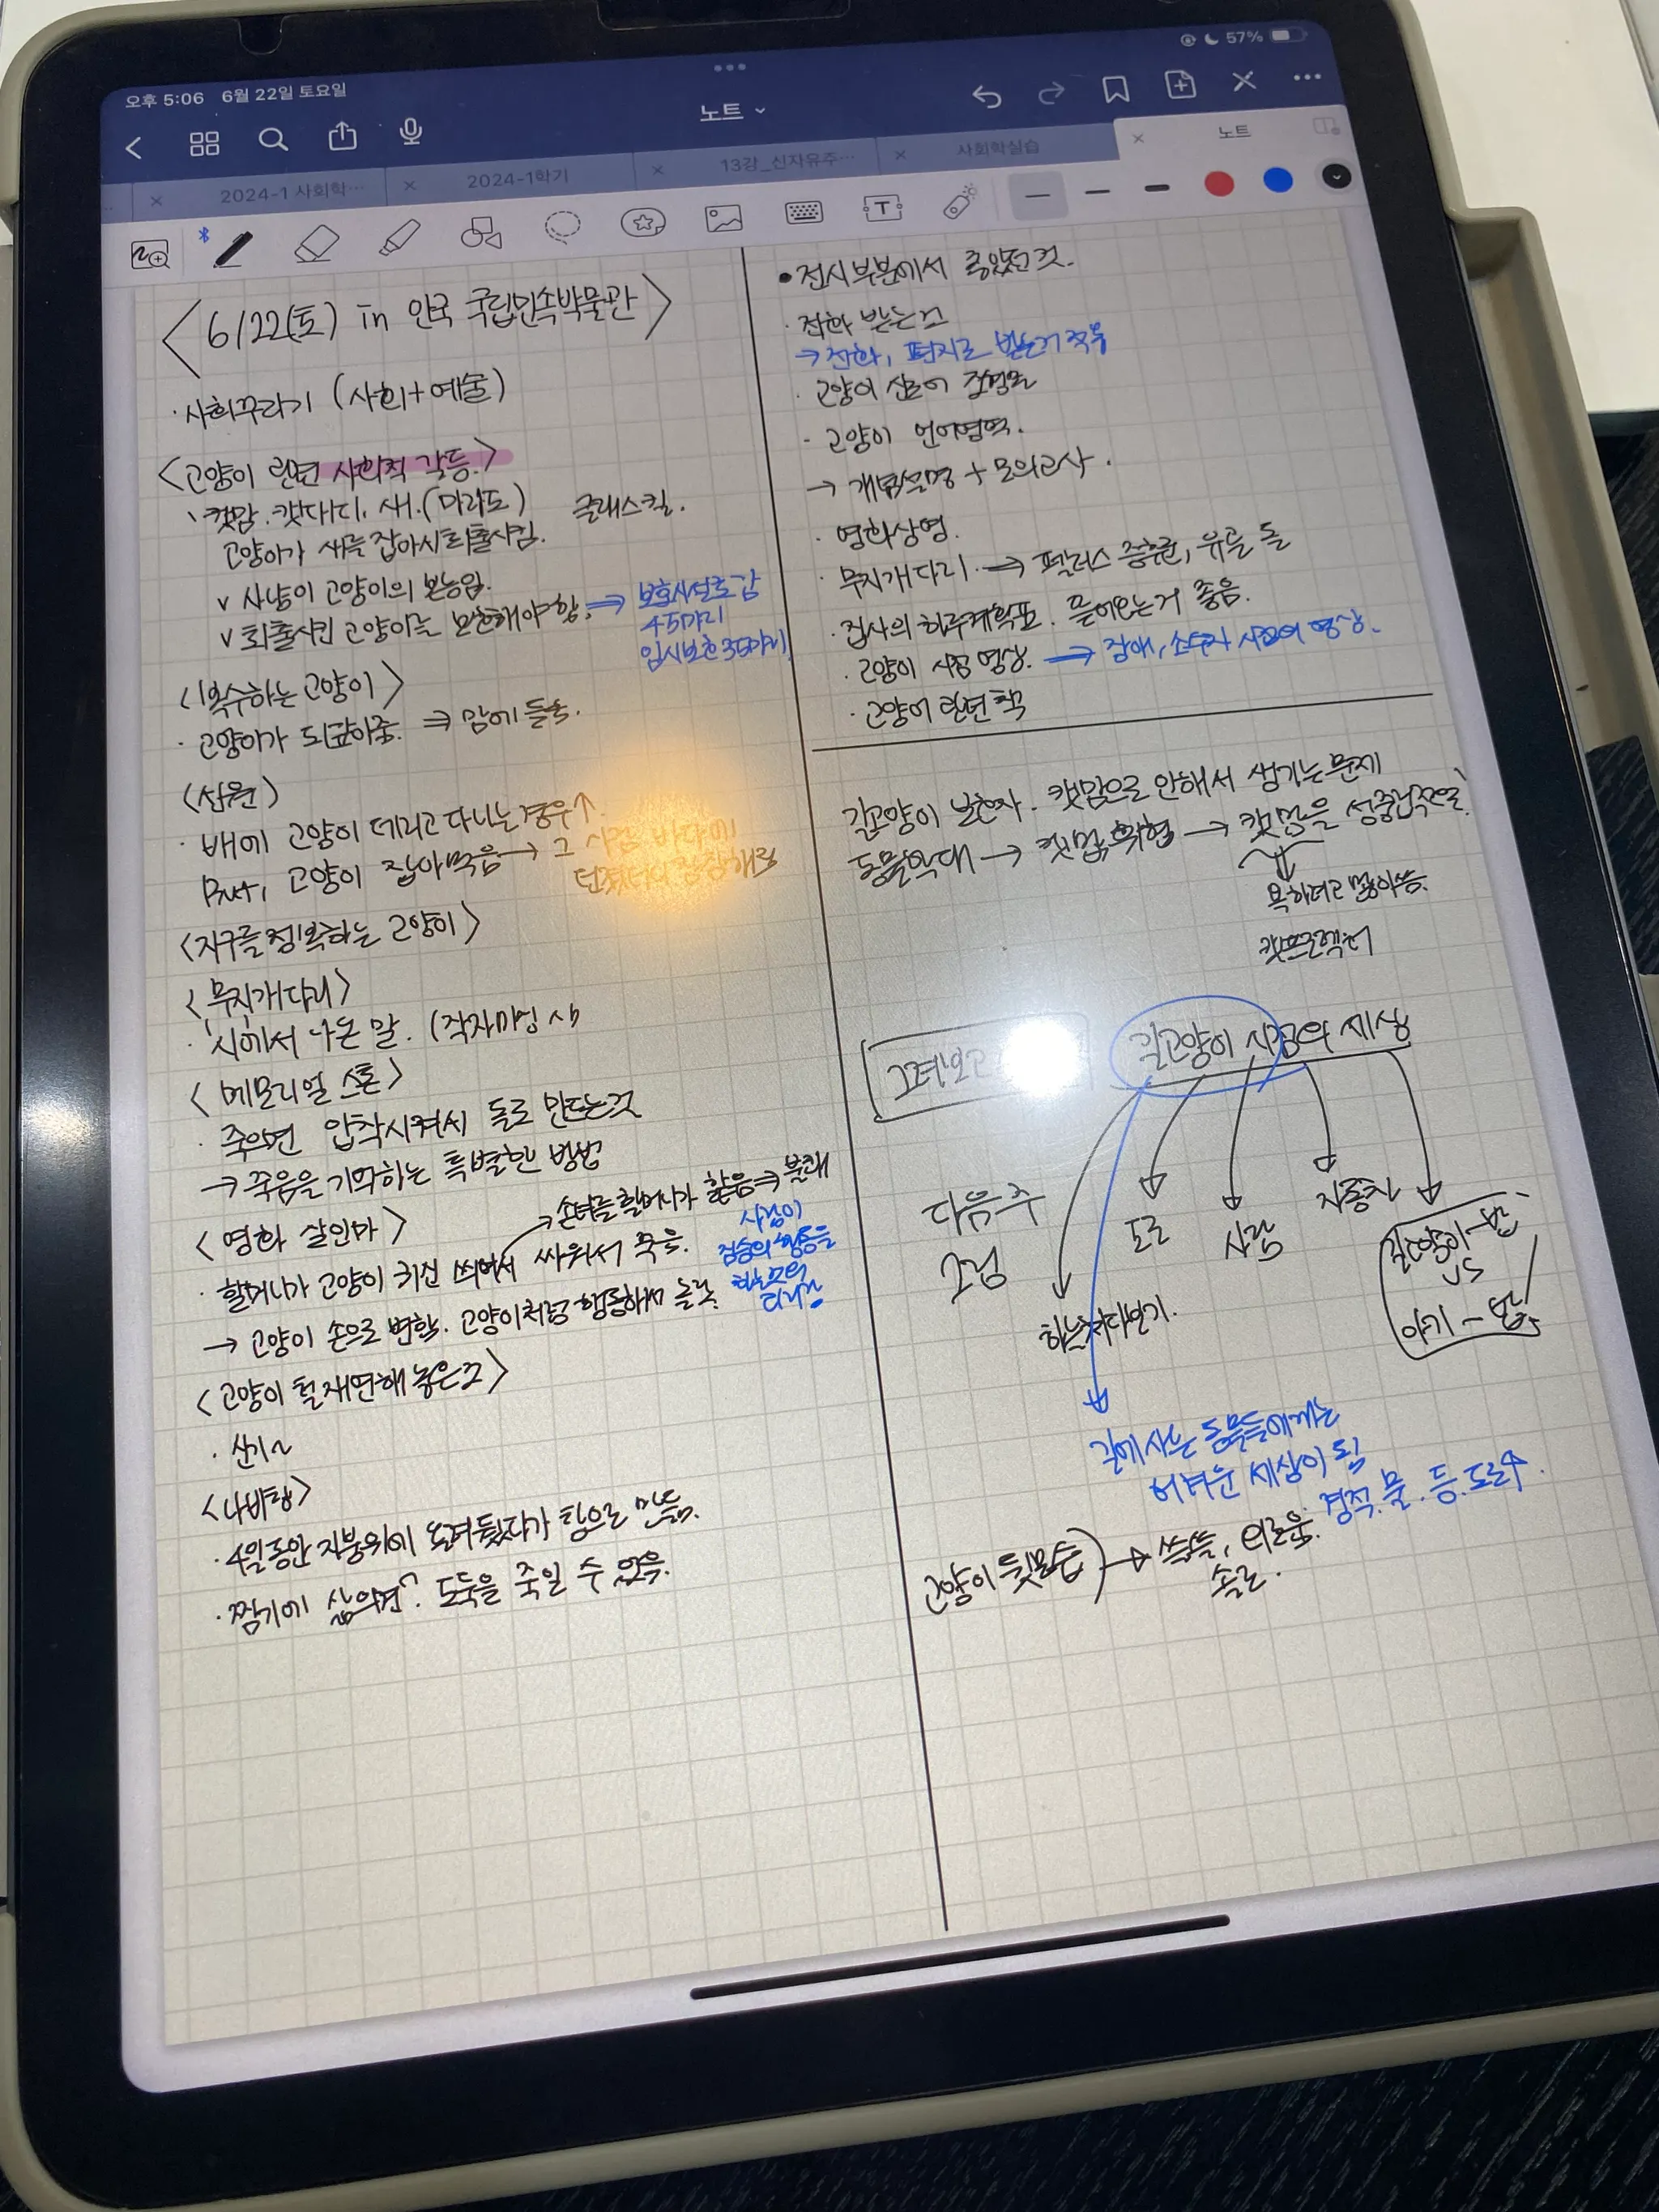 오후 5:06 6월 22일 토요일
57%
노트
2024-1 사회학…
2024-1학기
13강_신자유주…
사회학실습
노트
<6/22(토) in 안국 국립민속박물관>
· 사회꾸라기 (사회+예술)
<고양이 관련 사회적 갈등.>
· 캣맘. 캣대디. 새.(마라도) 클래스킬.
고양이가 새를 잡아서 퇴출시킴.
v 사냥이 고양이의 본능임.
v 퇴출시킨 고양이를 보호해야함. ⇒ 보호시설로 감
45마리
임시보호 35마리
<복수하는 고양이>
· 고양이가 되갚아줌. ⇒ 맘에 들음.
<선원>
· 배에 고양이 데리고 다니는 경우↑
But, 고양이 잡아먹음 → 그 사람 바다에
던졌더니 잔잔해짐
<지구를 정복하는 고양이>
<무지개다리>
· 시에서 나온 말. (작자미상 시
<메모리얼 스톤>
· 죽으면 압착시켜서 돌로 만드는것
→ 죽음을 기억하는 특별한 방법
<영화 살인마>
손녀를 할머니가 핥음 ⇒ 불쾌
· 할머니가 고양이 귀신 씌여서 싸워서 죽음.
사람이
짐승의 행동을
→ 고양이 손으로 변함. 고양이처럼 행동해서 놀람.
<고양이 털 재연해 놓은 것>
· 신기~
<나비탕>
· 4일동안 지붕위에 올려뒀다가 탕으로 만듦.
· 짬기에 삶으면? 도둑을 죽일 수 있음.
• 전시부분에서 좋았던 것.
· 전화 받는 것
→ 전화, 편지로 받는거 좋음
· 고양이 심리
· 고양이 언어영역.
→ 개념설명 + 모의고사.
· 영화상영.
· 무지개다리 → 펫로스 증후군, 유골 돌
· 집사의 하루계획표. 뜯어오는거 좋음.
· 고양이 시점 영상. → 장애, 소수자 시점의 영상.
· 고양이 관련 책
길고양이 보호자. 캣맘으로 안해서 생기는 문제
동물학대 → 캣맘 혐오 → 캣맘을
욕하려고 많이 씀.
길고양이 시점의 세상
다음주
그림
도로
사람
자동차
길고양이 - 밥
VS
아기 - 밥
하늘 쳐다보기.
길에 사는 동물들에게는
어려운 세상이 됨
경적. 물. 등. 도로↑.
고양이 뒷모습 → 쓸쓸, 외로움.